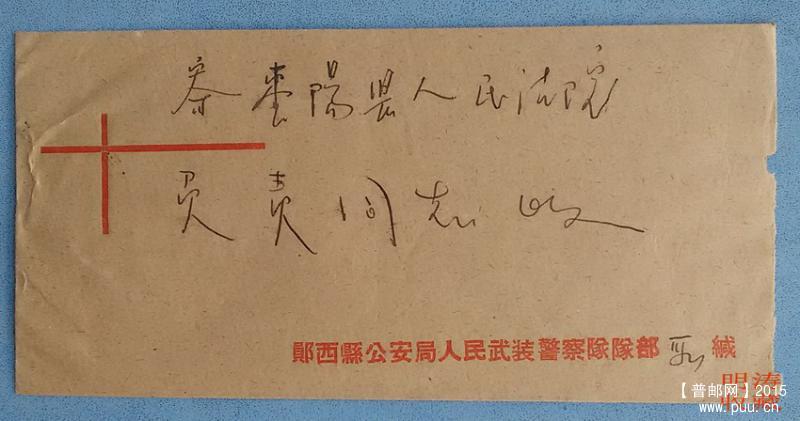 寄枣阳县人民法院
负责同志收
鄖西縣公安局人民武装警察隊隊部 缄
【普邮网】2015
www.puu.cn